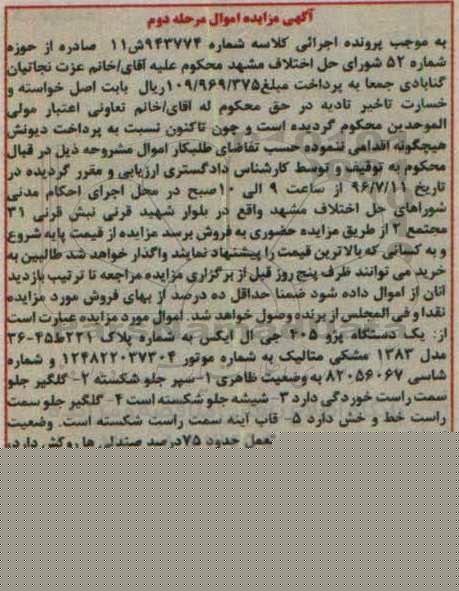 آگهی مزایده اموال مرحله دوم
به موجب پرونده اجرائی کلاسه شماره ۹۴۳۷۷۴ش۱۱ صادره از حوزه
شماره ۵۲ شورای حل اختلاف مشهد محکوم علیه آقای/خانم عزت نجاتیان
گنابادی جمعا به پرداخت مبلغ۱۰۹/۹۶۹/۳۷۵ریال بابت اصل خواسته و
خسارت تاخیر تادیه در حق محکوم له آقای/خانم تعاونی اعتبار مولی
الموحدین محکوم گردیده است و چون تاکنون نسبت به پرداخت دیونش
هیچگونه اقدامی ننموده حسب تقاضای طلبکار اموال مشروحه ذیل در قبال
محکوم به توقیف و توسط کارشناس دادگستری ارزیابی و مقرر گردیده در
تاریخ ۹۶/۷/۱۱ از ساعت ۹ الی ۱۰صبح در محل اجرای احکام مدنی
شوراهای حل اختلاف مشهد واقع در بلوار شهید قرنی نبش قرنی ۳۱
مجتمع ۲ از طریق مزایده حضوری به فروش برسد مزایده از قیمت پایه شروع
و به کسانی که بالاترین قیمت را پیشنهاد نمایند واگذار خواهد شد طالبین به
خرید می توانند ظرف پنج روز قبل از برگزاری مزایده مراجعه تا ترتیب بازدید
آنان از اموال داده شود ضمنا حداقل ده درصد از بهای فروش مورد مزایده
نقدا و فی المجلس از برنده وصول خواهد شد. اموال مورد مزایده عبارت است
از: یک دستگاه پژو ۴۰۵ جی ال ایکس به شماره پلاک ۲۲۱ط۴۵-۳۶
مدل ۱۳۸۳ مشکی متالیک به شماره موتور ۱۲۴۸۲۲۰۳۷۳۰۴ و شماره
شاسی ۸۲۰۵۶۰۶۷ به وضعیت ظاهری ۱- سپر جلو شکسته ۲- گلگیر جلو
سمت راست خوردگی دارد ۳- شیشه جلو شکسته است ۴- گلگیر جلو سمت
راست خط و خش دارد ۵- قاب آینه سمت راست شکسته است. وضعیت
حدود ۷۵درصد صندلی ها روکش دارد،